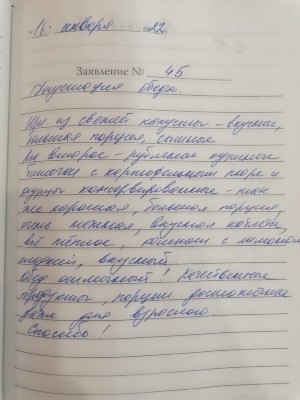 16 января 22.
Заявление № 45
Дегустация обеда.
Щи из свежей капусты - вкусные,
большая порция, сытные
На второе - рубленые куриные
биточки с картофельным пюре и
огурцы консервированные - так
же хорошая, большая порция,
очень нежная, вкусная котлета,
всё тёплое, компот с лимоном
сладкий, вкусный.
Обед отличный! Качественные
продукты, порции достаточные
даже для взрослого.
Спасибо!